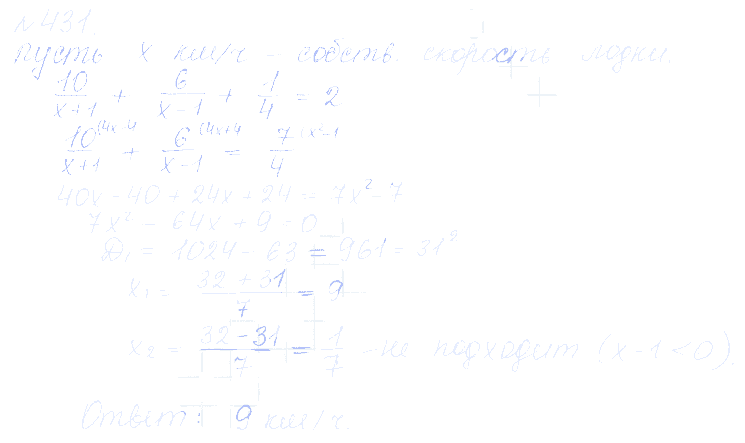 №431.
пусть x км/ч - собств. скорость лодки.
10/(x+1) + 6/(x-1) + 1/4 = 2
10^(4x-4/(x+1) + 6^(4x+4/(x-1) = 7^(x²-1/4
40x - 40 + 24x + 24 = 7x² - 7
7x² - 64x + 9 = 0
D₁ = 1024 - 63 = 961 = 31²
x₁ = (32 + 31)/7 = 9
x₂ = (32 - 31)/7 = 1/7 - не подходит (x-1<0).
Ответ: 9 км/ч.